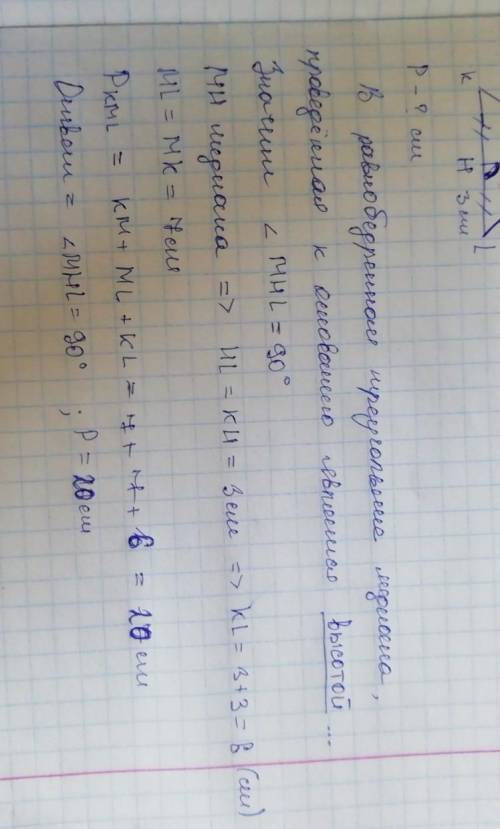 K H 3 см L
P - ? см
В равнобедренном треугольнике медиана,
проведённая к основанию является высотой ...
Значит ∠ MHL = 90°
MH медиана => HL = KH = 3 см => KL = 3 + 3 = 6 (см)
ML = MK = 7 см
PKML = KM + ML + KL = 7 + 7 + 6 = 20 см
Ответ = ∠MHL = 90° ; P = 20 см